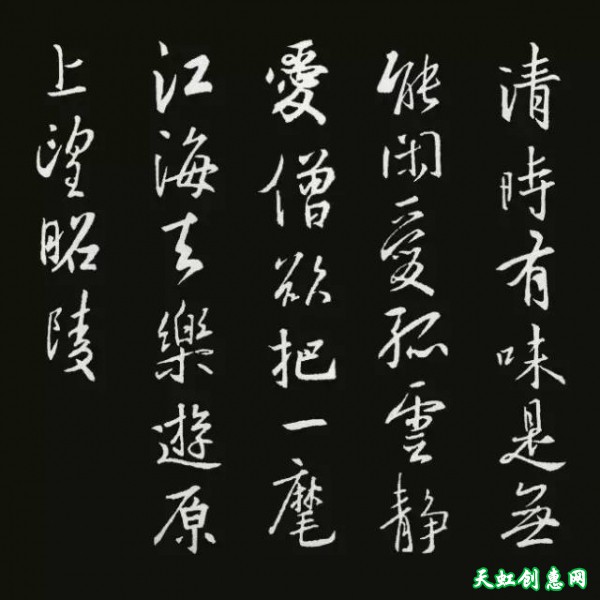 清時有味是無
能闲愛孤雲静
愛僧欲把一麾
江海去樂遊原
上望昭陵
天虹创惠网